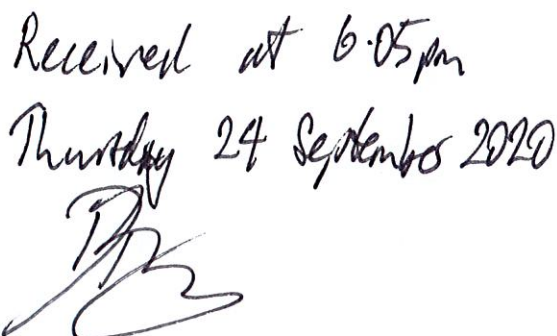 Received at 6.05pm
Thursday 24 September 2020